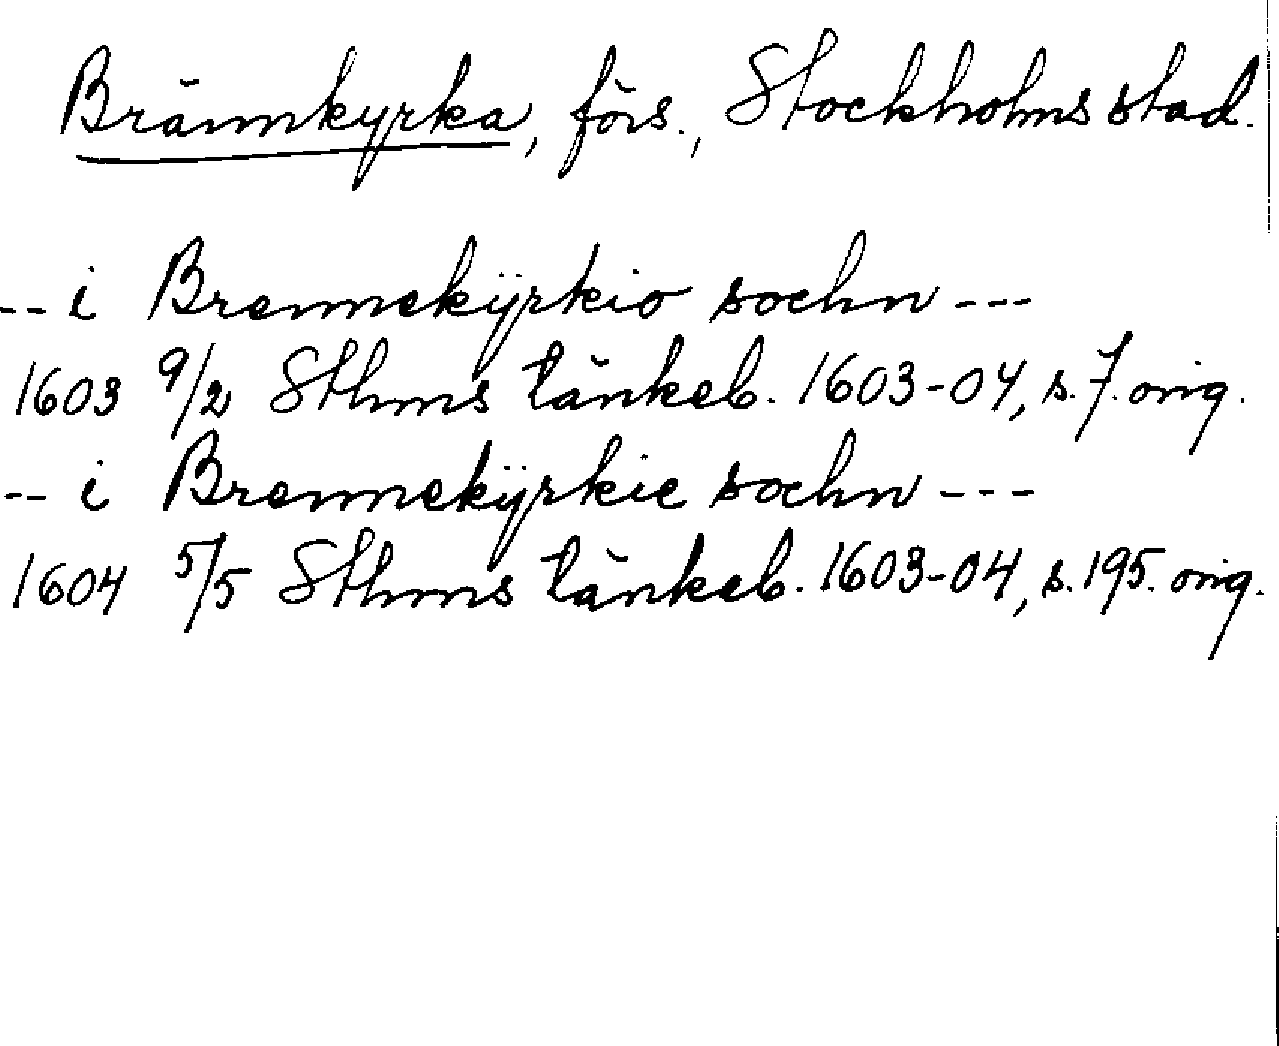 Brännkyrka, förs., Stockholms stad.
-- i Brennekÿrkio sochn ---
1603 9/2 Sthms tänkeb. 1603-04, s. 7. orig.
-- i Brennekÿrkie sochn ---
1604 5/5 Sthms tänkeb. 1603-04, s. 195. orig.